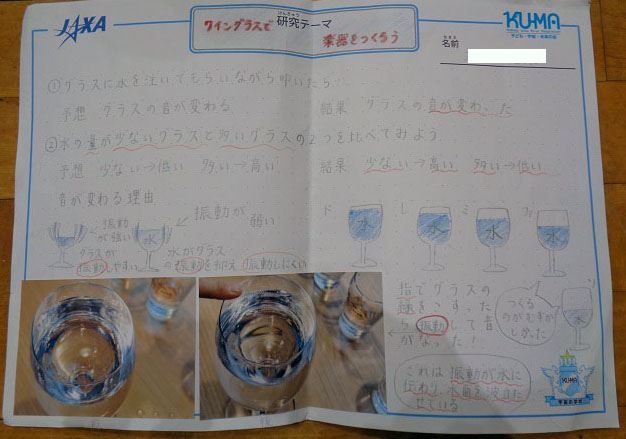 JAXA
けんきゅう
研究テーマ
ワイングラスで
楽器をつくろう
KU-MA
子ども・宇宙・未来の会
なまえ
名前
①グラスに水を注いでもらいながら叩いたら…
予想 グラスの音が変わる
結果 グラスの音が変わった
②水の量が少ないグラスと多いグラスの2つを比べてみよう
予想 少ない→低い 多い→高い
結果 少ない→高い 多い→低い
音が変わる理由
←振動が強い
グラスが振動しやすい
水
←振動が弱い
水がグラスの振動を抑え振動しにくい
ド
レ
ミ
ファ
水
水
水
水
指でグラスの
縁をこすった
ら振動して音
がなった！
つくる
のがむずか
しかった
ソ
水
これは振動が水に
伝わり、水面を波立た
せている
KU-MA
宇宙の学校